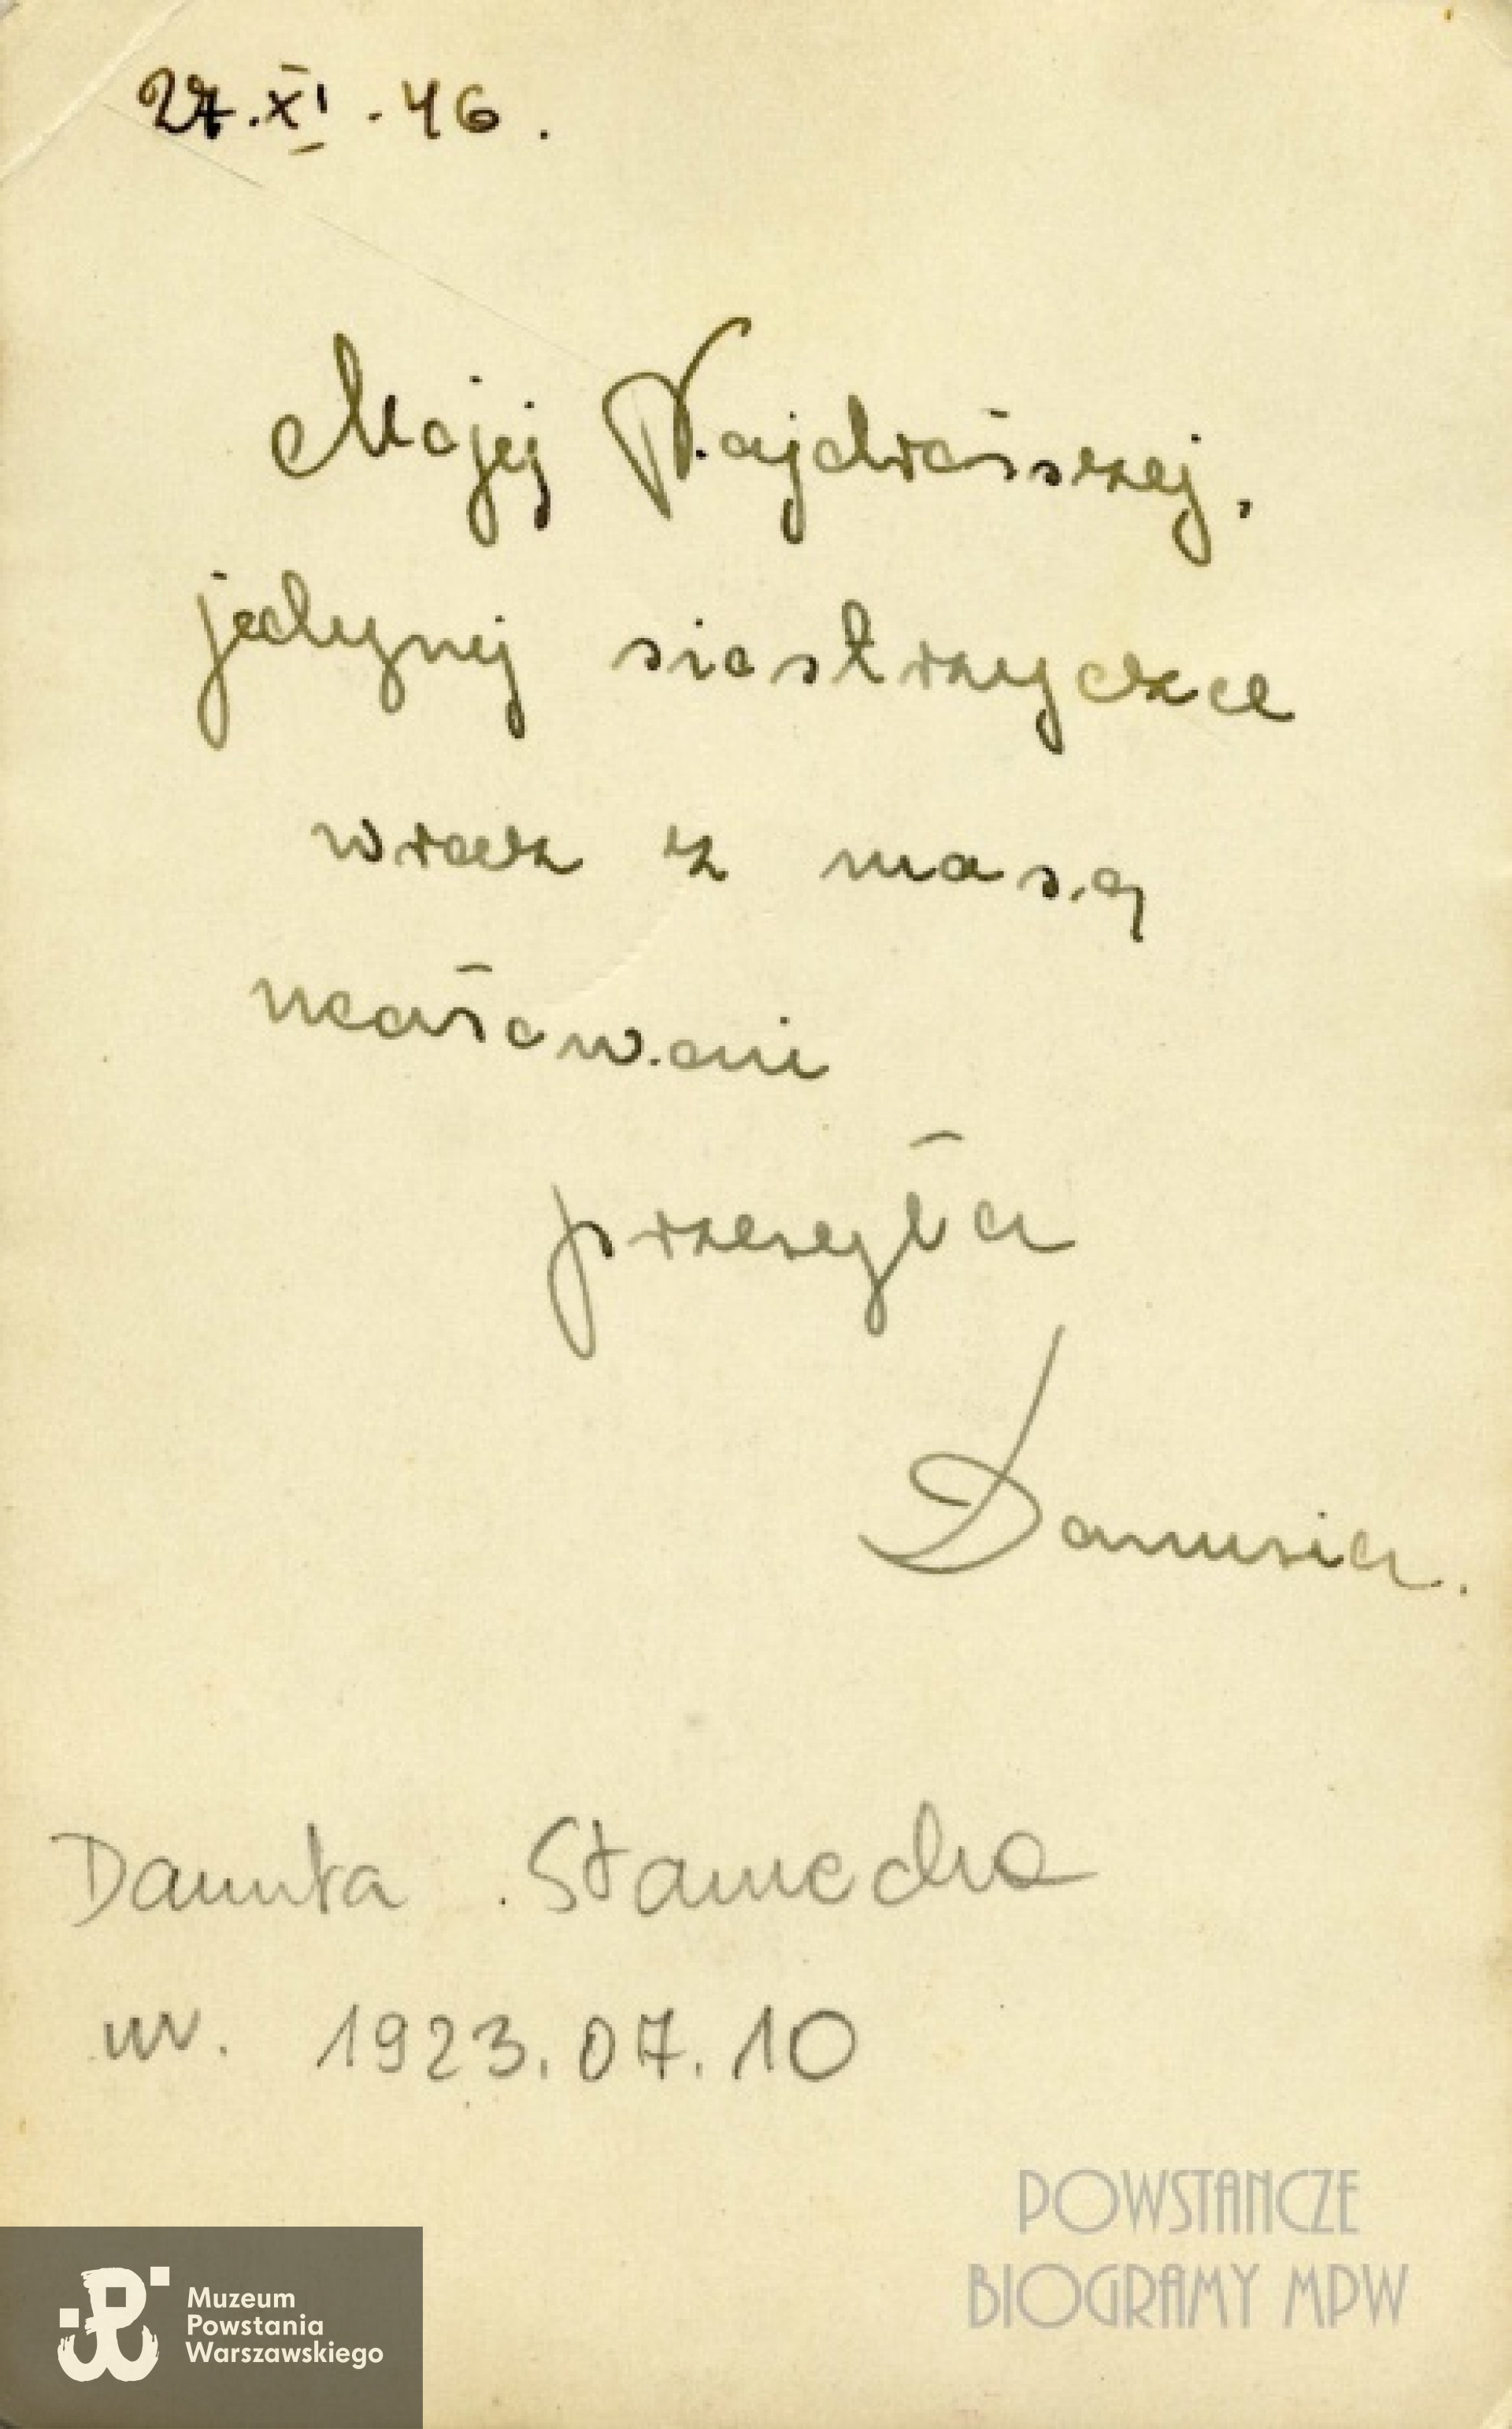 27.XI.46.
Mojej Najdroższej,
jedynej siostrzyczce
wraz z masą
ucałowań
przesyła
Danusia.
Danuta Stanecka
ur. 1923.07.10
POWSTAŃCZE
BIOGRAMY MPW
Muzeum
Powstania
Warszawskiego